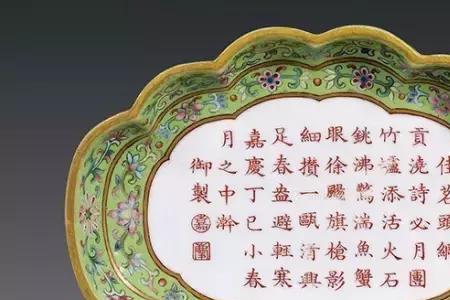 佳茗頭綱
貢澆詩必月團
竹爐添活火石
銚沸驚湍魚蟹
眼徐颺旗槍影
細攢一甌清興
足春盎避輕寒
嘉慶丁巳小春
月之中澣
御製